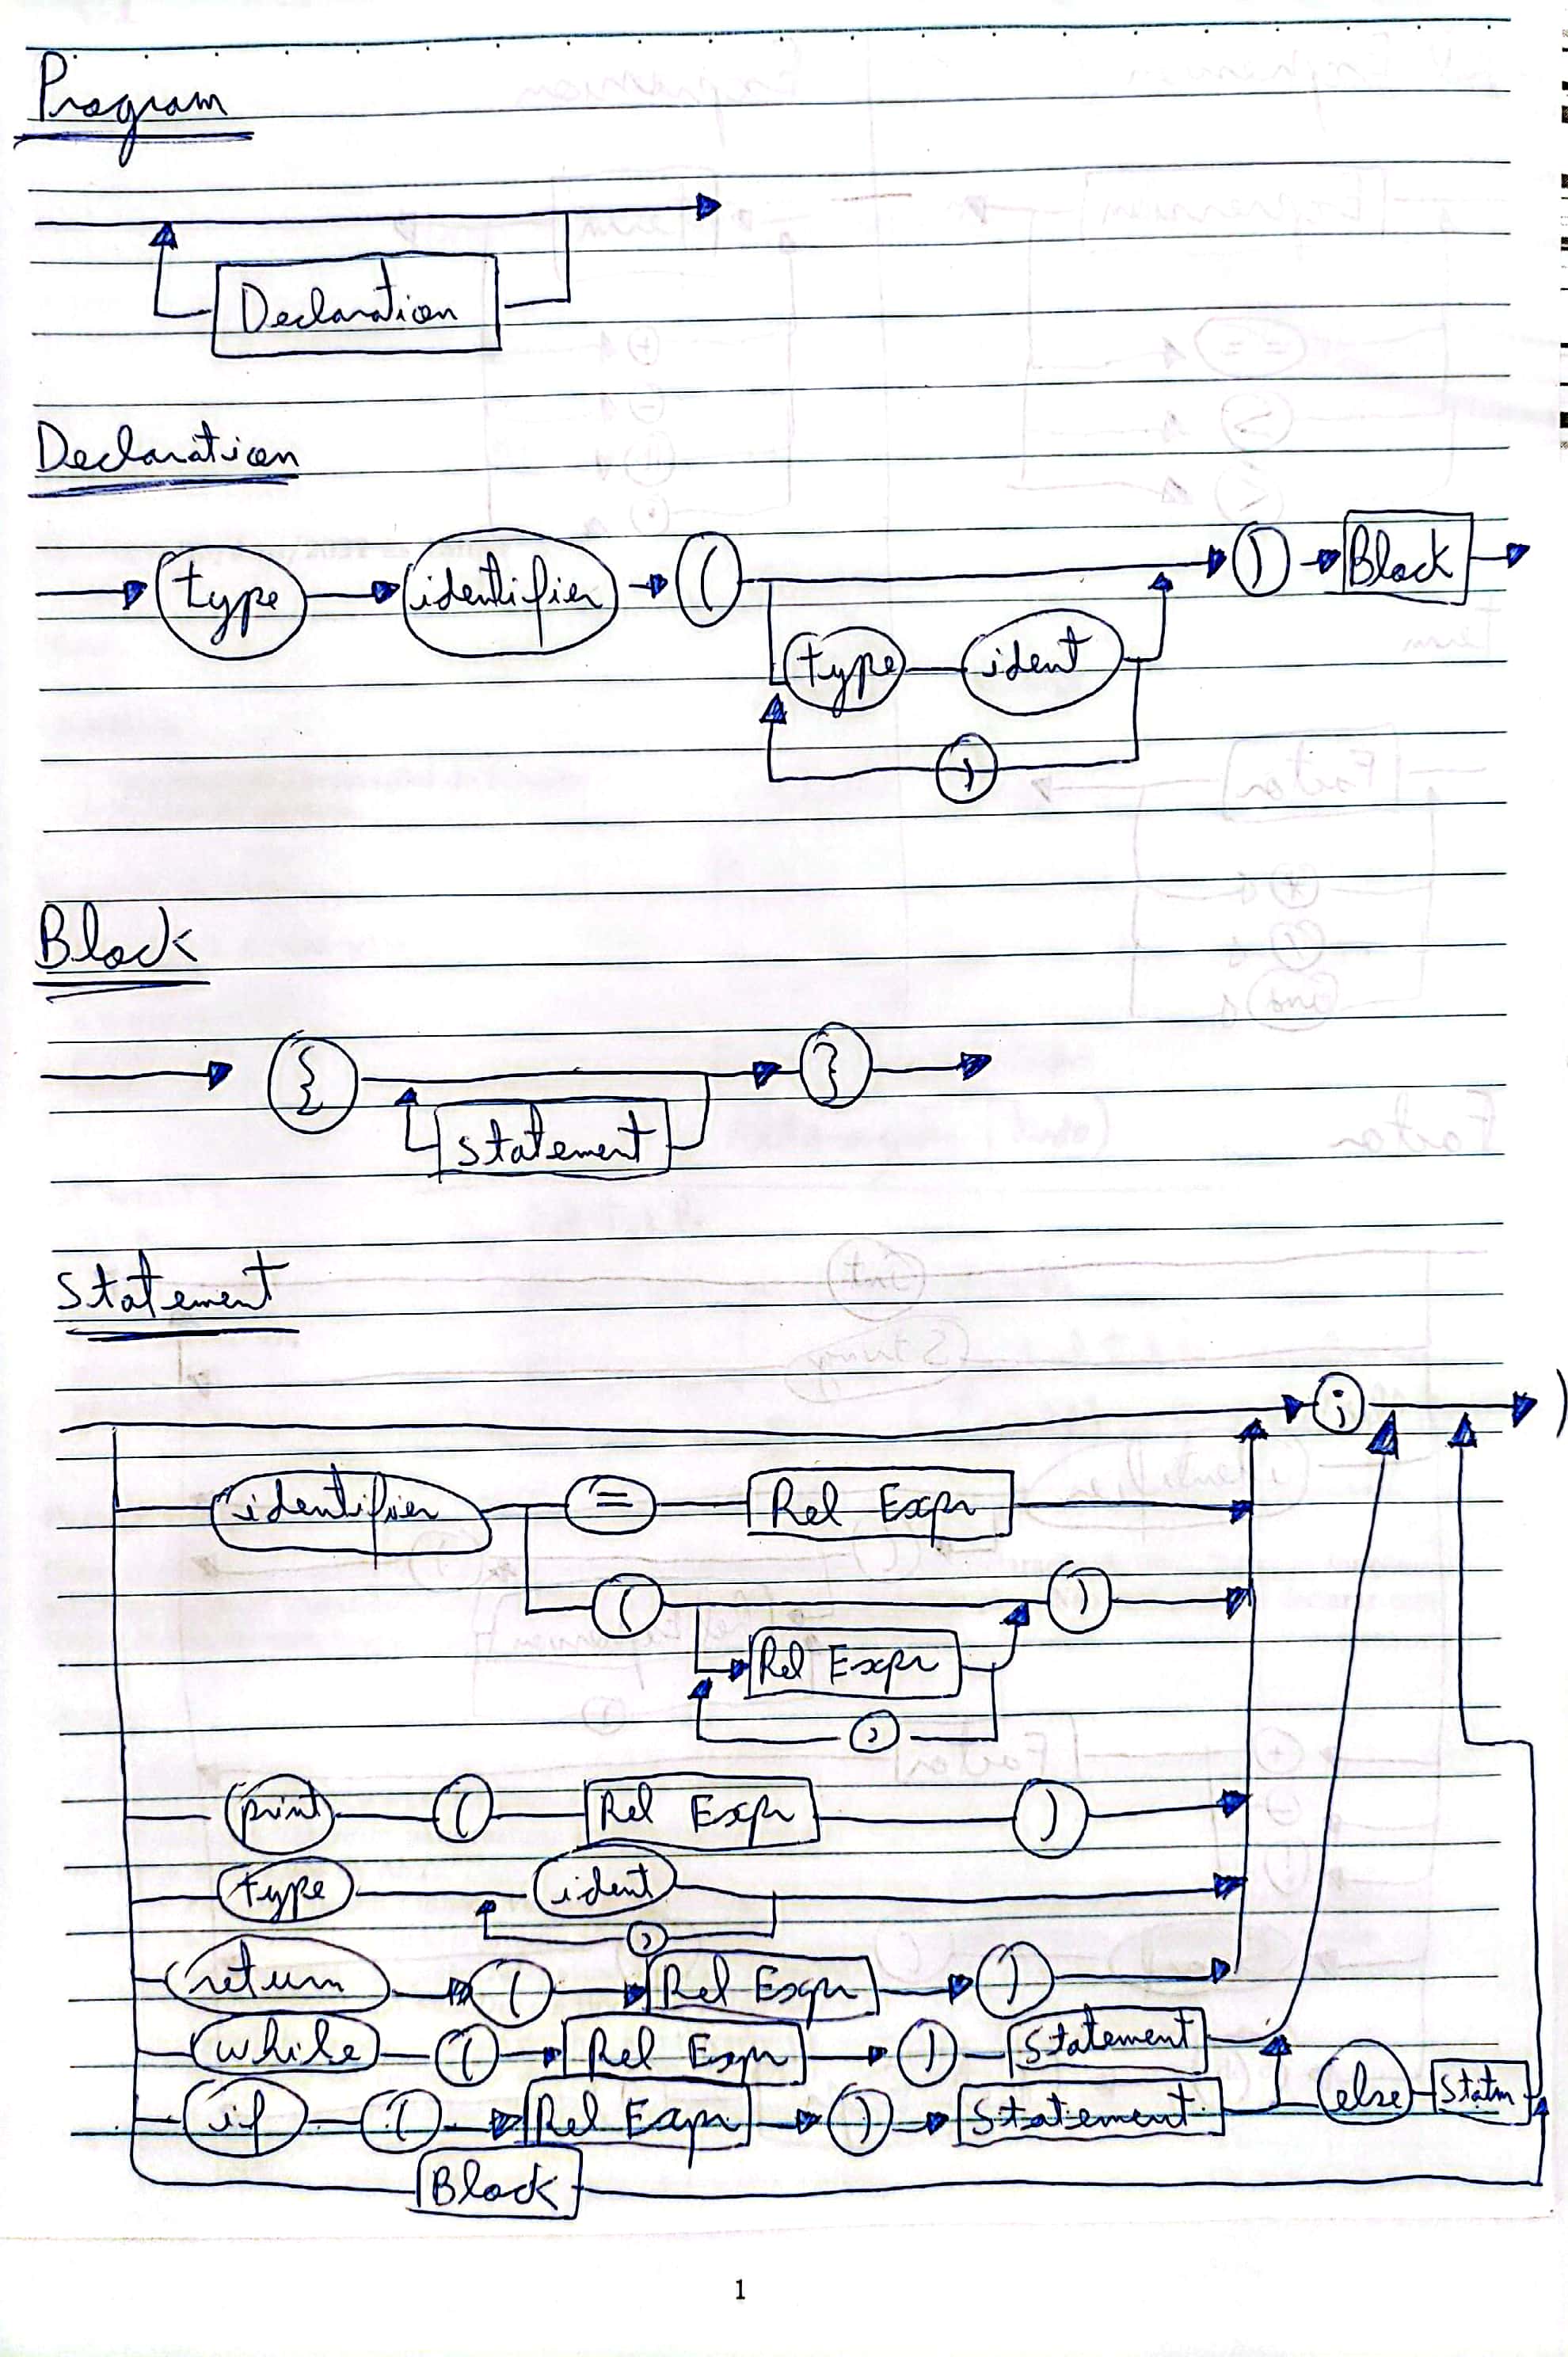 Program
Declaration
Declaration
type identifier ( ) Block
type ident
,
Block
{ }
statement
Statement
;
identifier = Rel Expr
( )
Rel Expr
,
print ( Rel Expr )
type ident
,
return ( Rel Expr )
while ( Rel Expr ) Statement
if ( Rel Expr ) Statement else Statm
Block
1